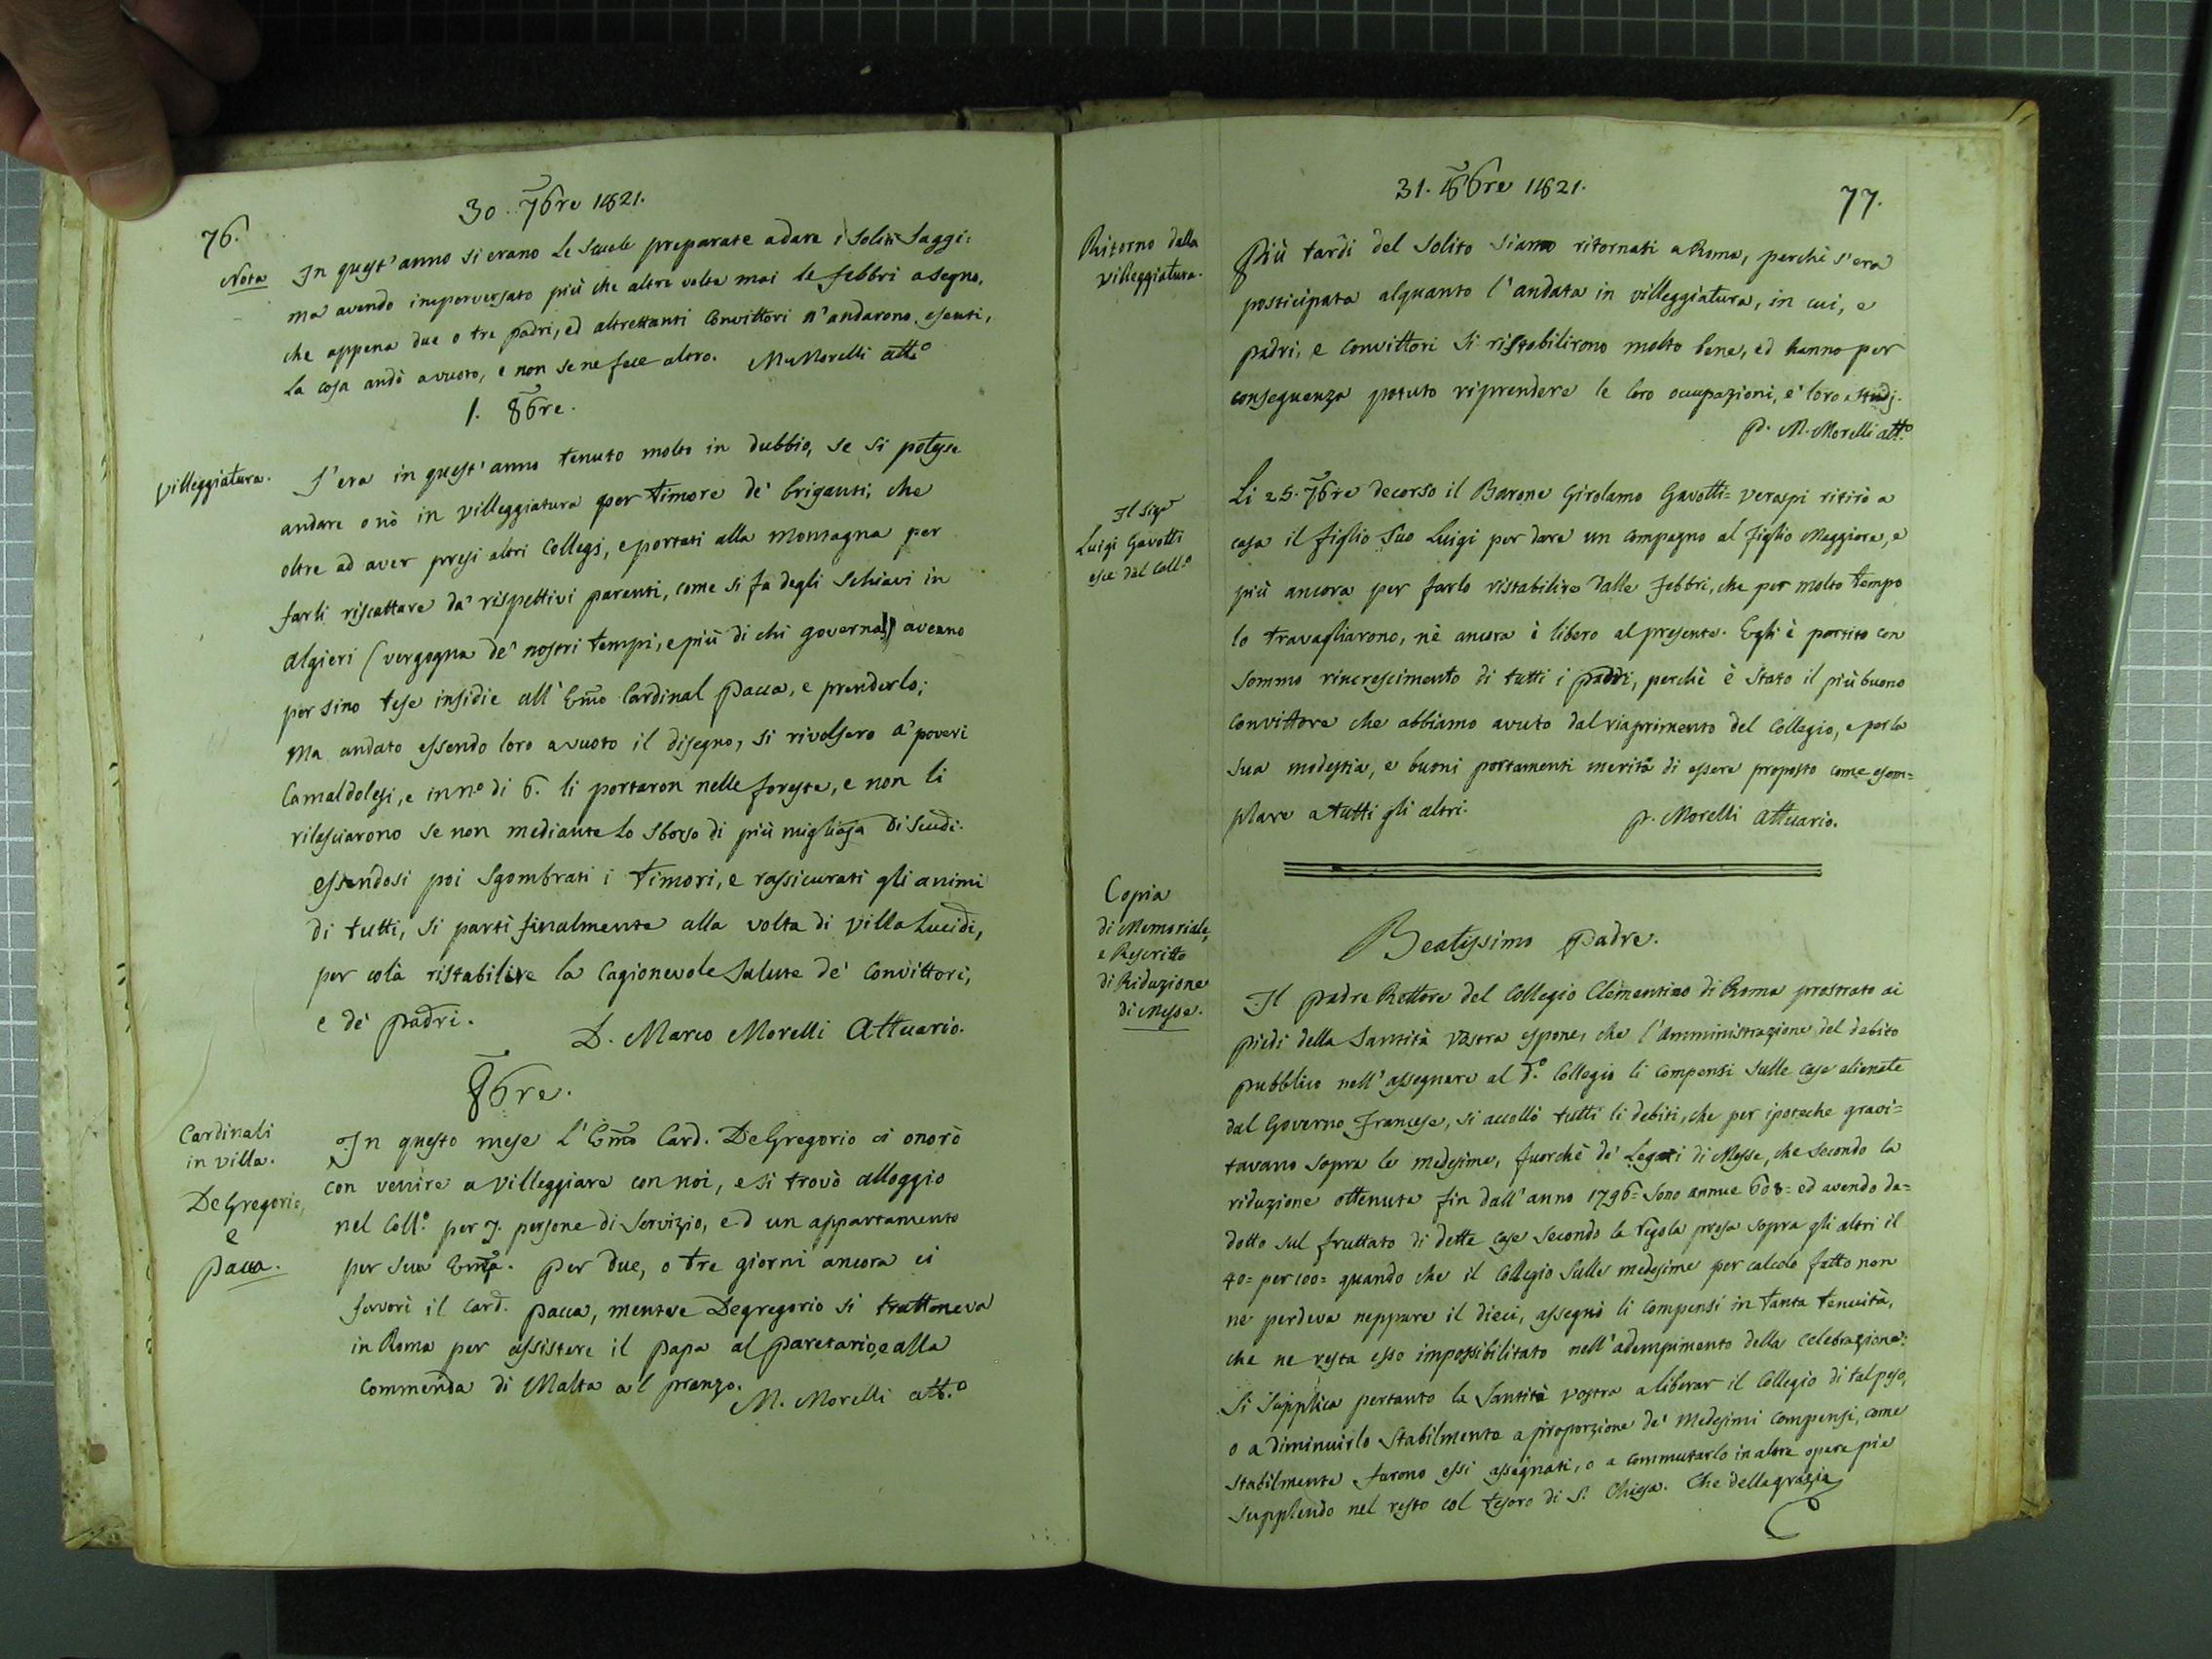 76.
30. 7bre 1821.
Nota
In quest'anno si erano le Scuole preparate a dare i soliti Saggi:
ma avendo imperversato più che altre volte mai le febbri a segno,
che appena due o tre Padri, ed altrettanti Convittori n'andarono esenti,
la cosa andò a vuoto, e non se ne fece altro. M. Morelli att.o
1. 8bre.
Villeggiatura.
S'era in quest'anno tenuto molto in dubbio, se si potesse
andare o nò in villeggiatura per timore de' briganti, che
oltre ad aver presi altri Collegj, e portati alla montagna per
farli riscattare da' rispettivi parenti, come si fa degli schiavi in
Algieri (vergogna de' nostri tempi, e più di chi governa!!) aveano
per sino tese insidie all'Emo Cardinal Pacca, e prenderlo;
Ma andato essendo loro a vuoto il disegno, si rivolsero a' poveri
Camaldolesi, e in n.o di 6. li portaron nelle foreste, e non li
rilasciarono se non mediante lo sborso di più migliaja di scudi.
Essendosi poi sgombrati i timori, e rassicurati gli animi
di tutti, si partì finalmente alla volta di Villa Lucidi,
per colà ristabilire la cagionevole salute de' Convittori,
e de' Padri.
D. Marco Morelli Attuario.
8bre.
Cardinali
in villa.
De Gregorio,
e
Pacca.
In questo mese l'Emo Card. De Gregorio ci onorò
con venire a villeggiare con noi, e si trovò alloggio
nel Coll.o per 7. persone di servizio, ed un appartamento
per sua Emza. Per due, o tre giorni ancora ci
favorì il Card. Pacca, mentre Degregorio si tratteneva
in Roma per assistere il Papa al paretario, e alla
Commenda di Malta al pranzo.
M. Morelli att.o
31. 8bre 1821.
77.
Ritorno dalla
villeggiatura.
Più tardi del solito siamo ritornati a Roma, perchè s'era
posticipata alquanto l'andata in villeggiatura, in cui, e
Padri, e Convittori si ristabilirono molto bene, ed hanno per
conseguenza potuto riprendere le loro occupazioni, e' loro studj.
P. M. Morelli att.o
Il Sigr
Luigi Gavotti
esce dal Coll.o
Li 25. 7bre decorso il Barone Girolamo Gavotti=Verospi ritirò a
casa il figlio suo Luigi per dare un compagno al figlio Maggiore, e
più ancora per farlo ristabilire dalle febbri, che per molto tempo
lo travagliarono, nè ancora è libero al presente. Egli è partito con
sommo rincrescimento di tutti i Padri, perchè è stato il più buono
convittore che abbiamo avuto dal riaprimento del Collegio, e per la
sua modestia, e buoni portamenti merita di essere proposto come esem=
plare a tutti gli altri.
P. Morelli Attuario.
Copia
di Memoriale,
e Rescritto
di Riduzione
di Messe.
Beatissimo Padre.
Il Padre Rettore del Collegio Clementino di Roma prostrato ai
piedi della Santità Vostra espone, che l'Amministrazione del debito
pubblico nell'assegnare al d.o Collegio li compensi sulle case alienate
dal Governo Francese, si accollò tutti li debiti, che per ipoteche gravi=
tavano sopra le medesime, fuorchè de' Legati di Messe, che secondo la
riduzione ottenuta fin dall'anno 1796= sono annue 608= ed avendo de=
dotto sul fruttato di dette case secondo la regola presa sopra gli altri il
40= per 100= quando che il Collegio sulle medesime per calcolo fatto non
ne perdeva neppure il dieci, assegnò li compensi in tanta tenuità,
che ne resta esso impossibilitato nell'adempimento della celebrazione:
Si supplica pertanto la Santità Vostra a liberar il Collegio di tal peso,
o a diminuirlo stabilmente a proporzione de' medesimi compensi, come
stabilmente furono essi assegnati, o a commutarlo in altre opere pie
supplendo nel resto col tesoro di S. Chiesa. Che della grazia